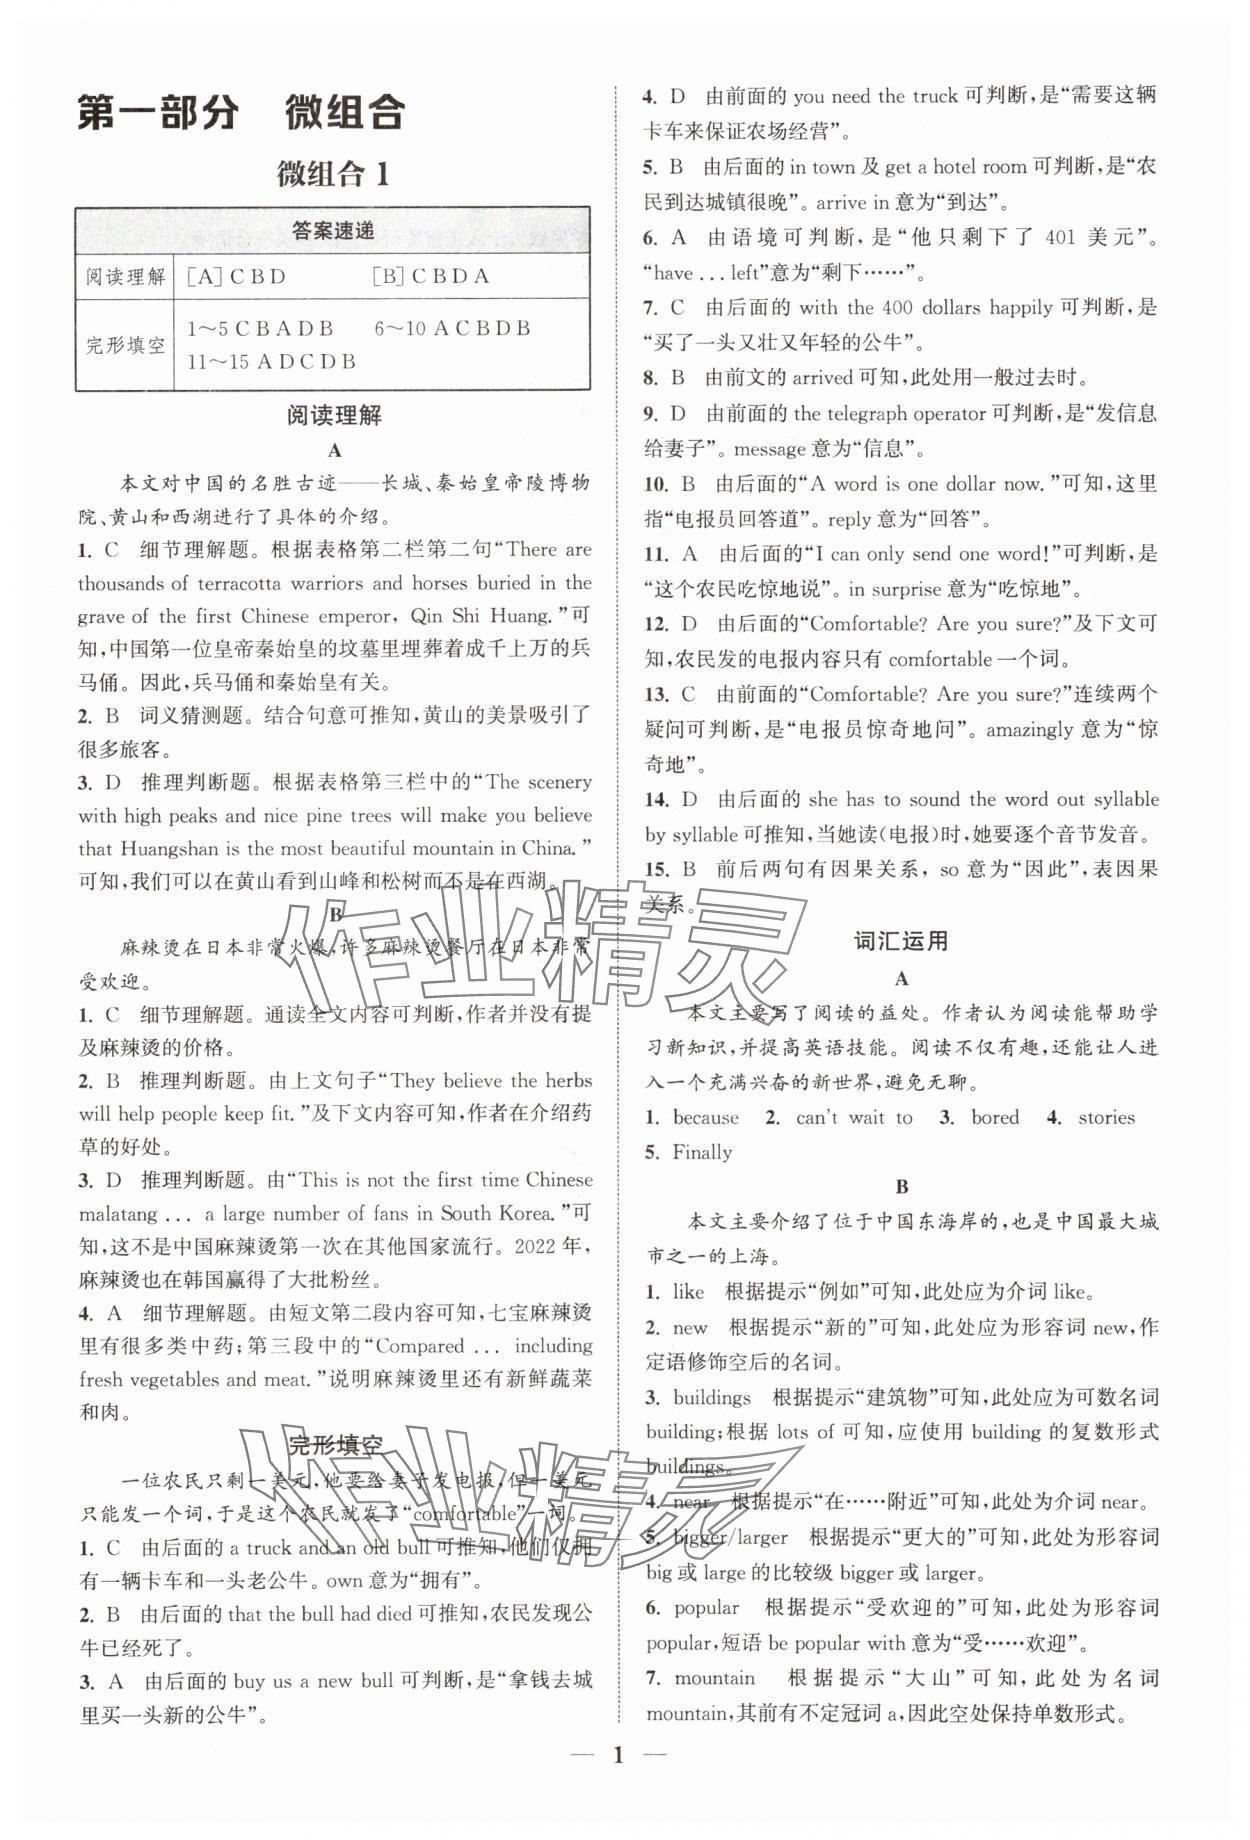 第一部分 微组合
微组合 1
答案速递
阅读理解 [A]C B D [B]C B D A
完形填空 1～5 C B A D B 6～10 A C B D B
11～15 A D C D B
阅读理解
A
本文对中国的名胜古迹——长城、秦始皇帝陵博物
院、黄山和西湖进行了具体的介绍。
1. C 细节理解题。根据表格第二栏第二句“There are
thousands of terracotta warriors and horses buried in the
grave of the first Chinese emperor, Qin Shi Huang.”可
知,中国第一位皇帝秦始皇的坟墓里埋葬着成千上万的兵
马俑。因此,兵马俑和秦始皇有关。
2. B 词义猜测题。结合句意可推知,黄山的美景吸引了
很多旅客。
3. D 推理判断题。根据表格第三栏中的“The scenery
with high peaks and nice pine trees will make you believe
that Huangshan is the most beautiful mountain in China.”
可知,我们可以在黄山看到山峰和松树而不是在西湖。
B
麻辣烫在日本非常火爆,许多麻辣烫餐厅在日本非常
受欢迎。
1. C 细节理解题。通读全文内容可判断,作者并没有提
及麻辣烫的价格。
2. B 推理判断题。由上文句子“They believe the herbs
will help people keep fit.”及下文内容可知,作者在介绍药
草的好处。
3. D 推理判断题。由“This is not the first time Chinese
malatang ... a large number of fans in South Korea.”可
知,这不是中国麻辣烫第一次在其他国家流行。2022 年,
麻辣烫也在韩国赢得了大批粉丝。
4. A 细节理解题。由短文第二段内容可知,七宝麻辣烫
里有很多类中药;第三段中的“Compared ... including
fresh vegetables and meat.”说明麻辣烫里还有新鲜蔬菜
和肉。
完形填空
一位农民只剩一美元,他要给妻子发电报,但一美元
只能发一个词,于是这个农民就发了“comfortable”一词。
1. C 由后面的 a truck and an old bull 可推知,他们仅拥
有一辆卡车和一头老公牛。own 意为“拥有”。
2. B 由后面的 that the bull had died 可推知,农民发现公
牛已经死了。
3. A 由后面的 buy us a new bull 可判断,是“拿钱去城
里买一头新的公牛”。
4. D 由前面的 you need the truck 可判断,是“需要这辆
卡车来保证农场经营”。
5. B 由后面的 in town 及 get a hotel room 可判断,是“农
民到达城镇很晚”。arrive in 意为“到达”。
6. A 由语境可判断,是“他只剩下了 401 美元”。
“have ... left”意为“剩下……”。
7. C 由后面的 with the 400 dollars happily 可判断,是
“买了一头又壮又年轻的公牛”。
8. B 由前文的 arrived 可知,此处用一般过去时。
9. D 由前面的 the telegraph operator 可判断,是“发信息
给妻子”。message 意为“信息”。
10. B 由后面的“A word is one dollar now.”可知,这里
指“电报员回答道”。reply 意为“回答”。
11. A 由后面的“I can only send one word!”可判断,是
“这个农民吃惊地说”。in surprise 意为“吃惊地”。
12. D 由后面的“Comfortable? Are you sure?”及下文可
知,农民发的电报内容只有 comfortable 一个词。
13. C 由前面的“Comfortable? Are you sure?”连续两个
疑问可判断,是“电报员惊奇地问”。amazingly 意为“惊
奇地”。
14. D 由后面的 she has to sound the word out syllable
by syllable 可推知,当她读(电报)时,她要逐个音节发音。
15. B 前后两句有因果关系, so 意为“因此”,表因果
关系。
词汇运用
A
本文主要写了阅读的益处。作者认为阅读能帮助学
习新知识,并提高英语技能。阅读不仅有趣,还能让人进
入一个充满兴奋的新世界,避免无聊。
1. because 2. can't wait to 3. bored 4. stories
5. Finally
B
本文主要介绍了位于中国东海岸的,也是中国最大城
市之一的上海。
1. like 根据提示“例如”可知,此处应为介词 like。
2. new 根据提示“新的”可知,此处应为形容词 new,作
定语修饰空后的名词。
3. buildings 根据提示“建筑物”可知,此处应为可数名词
building;根据 lots of 可知,应使用 building 的复数形式
buildings。
4. near 根据提示“在……附近”可知,此处为介词 near。
5. bigger/larger 根据提示“更大的”可知,此处为形容词
big 或 large 的比较级 bigger 或 larger。
6. popular 根据提示“受欢迎的”可知,此处为形容词
popular,短语 be popular with 意为“受……欢迎”。
7. mountain 根据提示“大山”可知,此处为名词
mountain,其前有不定冠词 a,因此空处保持单数形式。
— 1 —
作业精灵
作业精灵